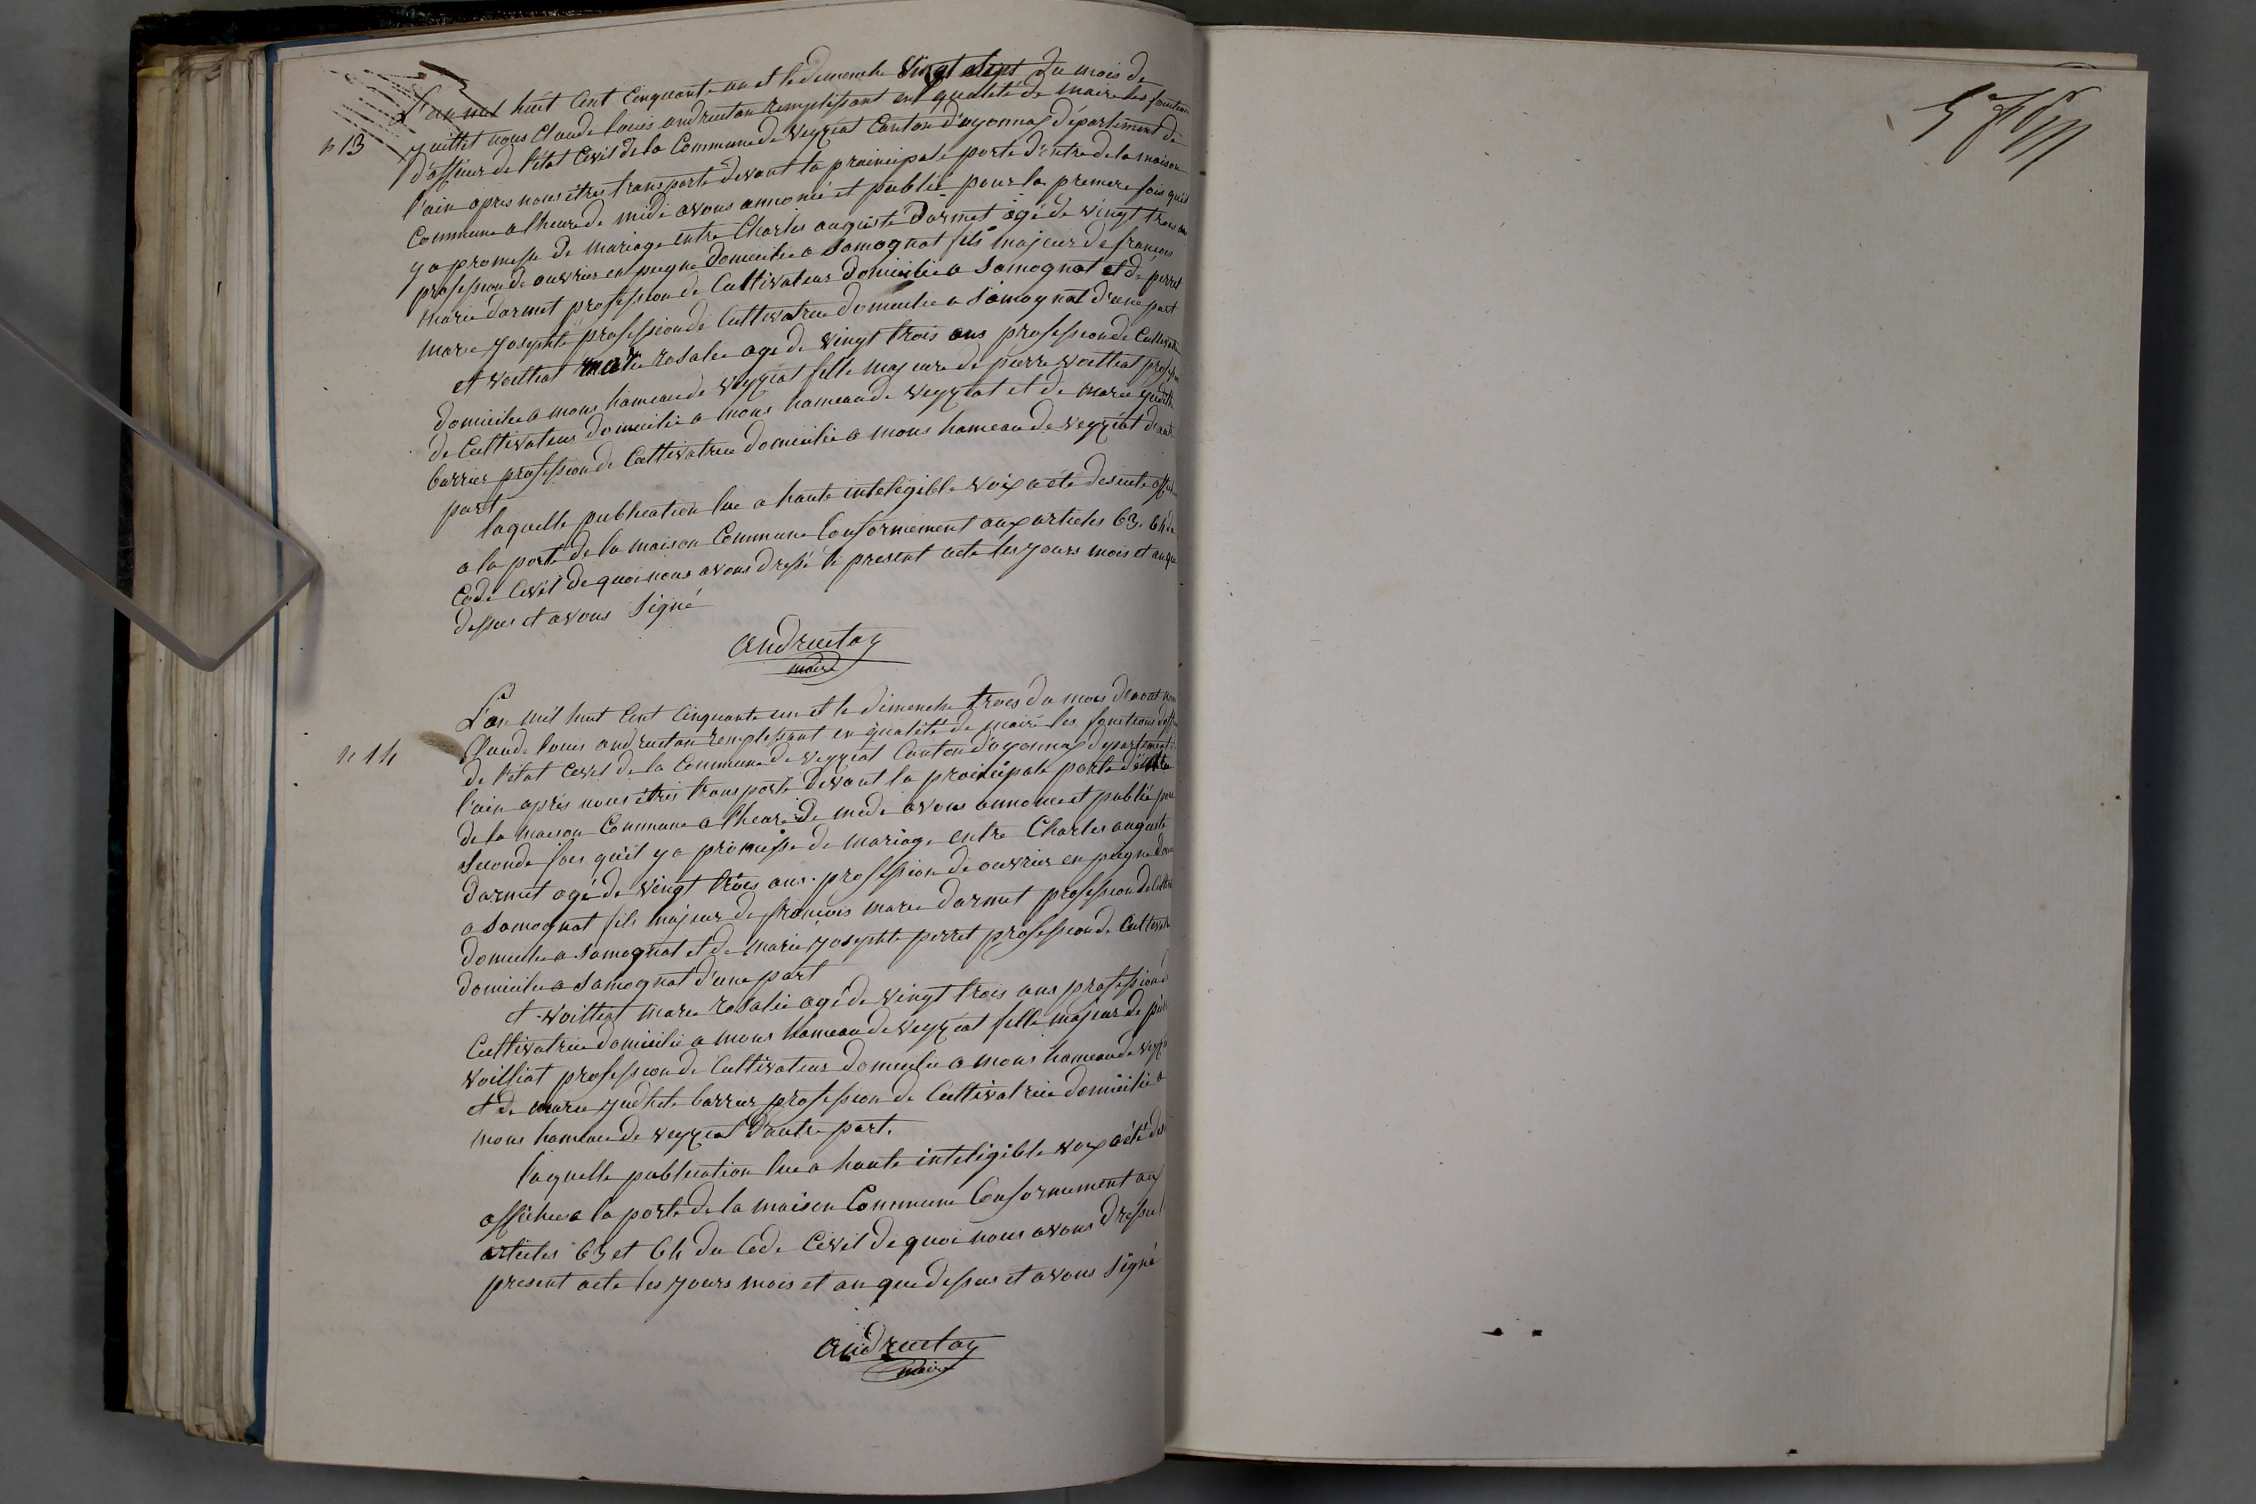 n 13
L'an mil huit Cent Cinquante un et le dimenche vingt sept du mois de
juillet nous Claude louis andruetan remplissant en qualité de maire les fonction
d'officier de l'état Civil de la Commune de veyziat Canton d'oyonnax département de
l'ain apres nous être transporté devant la prainicipale porte d'entre de la maison
Commune a lheure de midi avons annoncé et publié pour la premere fois qu'il
y a promesse de mariage entre Charles auguste Darmet âgé de vingt trois ans
profession de ouvrier en peigne domicilie a Samognat fils majeur de françois
marie darmet profession de Cultivateur domicilie a Samognat et de perret
marie josephte profession de Cultivatrice domicilie a Samognat d'une part
et voittiat marie rosalie age de vingt trois ans profession de Cultivatri
domicilie a mons hameau de veyziat fille majeure de pierre voittiat profession
de Cultivateur domicilie a mons hameau de veyziat et de marie
barrier profession de Cultivatrice domicilie a mons hameau de veyziat d'aut
part
laquelle publication lue a haute inteligible voix a été desuite affiche
a la porte de la maison Commune Conformement aux articles 63. 64 du
Code Civil de quoi nous avons dressé le present acte les jours mois et an que
dessus et avons signé
andruetan
maire
n 14
L'an mil huit Cent Cinquante un et le dimenche trois du mois d'aout nous
Claude louis andruetan remplissant en qualité de maire les fonctions d'offi
de l'état Civil de la Commune de veyziat Canton d'oyonnax département d
l'ain après nous être transporté devant la prainicipale porte d'entre
de la maison Commune a lheure de midi avons annonce et publié pour
seconde fois qu'il y a promesse de mariage entre Charles auguste
darmet agé de vingt trois ans. profession de ouvrier en peigne dom
a Samognat fils majeur de françois marie darmet profession de Cultiv
domicilie a Samognat et de marie josephte perret profession de Cultivatri
domicilie a Samognat d'une part
et voittiat marie rosalie agé de vingt trois ans profession d
Cultivatrice domicilie a mons hameau de veyziat fille majeur de pier
voittiat profession de Cultivateur domicilie a mons hameau de veyz
et de marie judhite barrier profession de Cultivatrice domicilié a
mons hameau de veyziat d'autre part.
laquelle publication lue a haute inteligible voix a été des
affichee a la porte de la maison Commune Conformement aux
articles 63 et 64 du Code Civil de quoi nous avons dressé l
present acte les jours mois et an que dessus et avons signé
andruetan
maire